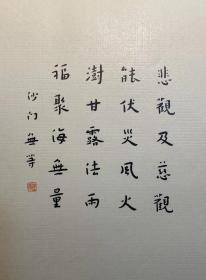 悲觀及慈觀
能伏災風火
澍甘露法雨
福聚海無量
沙门無等